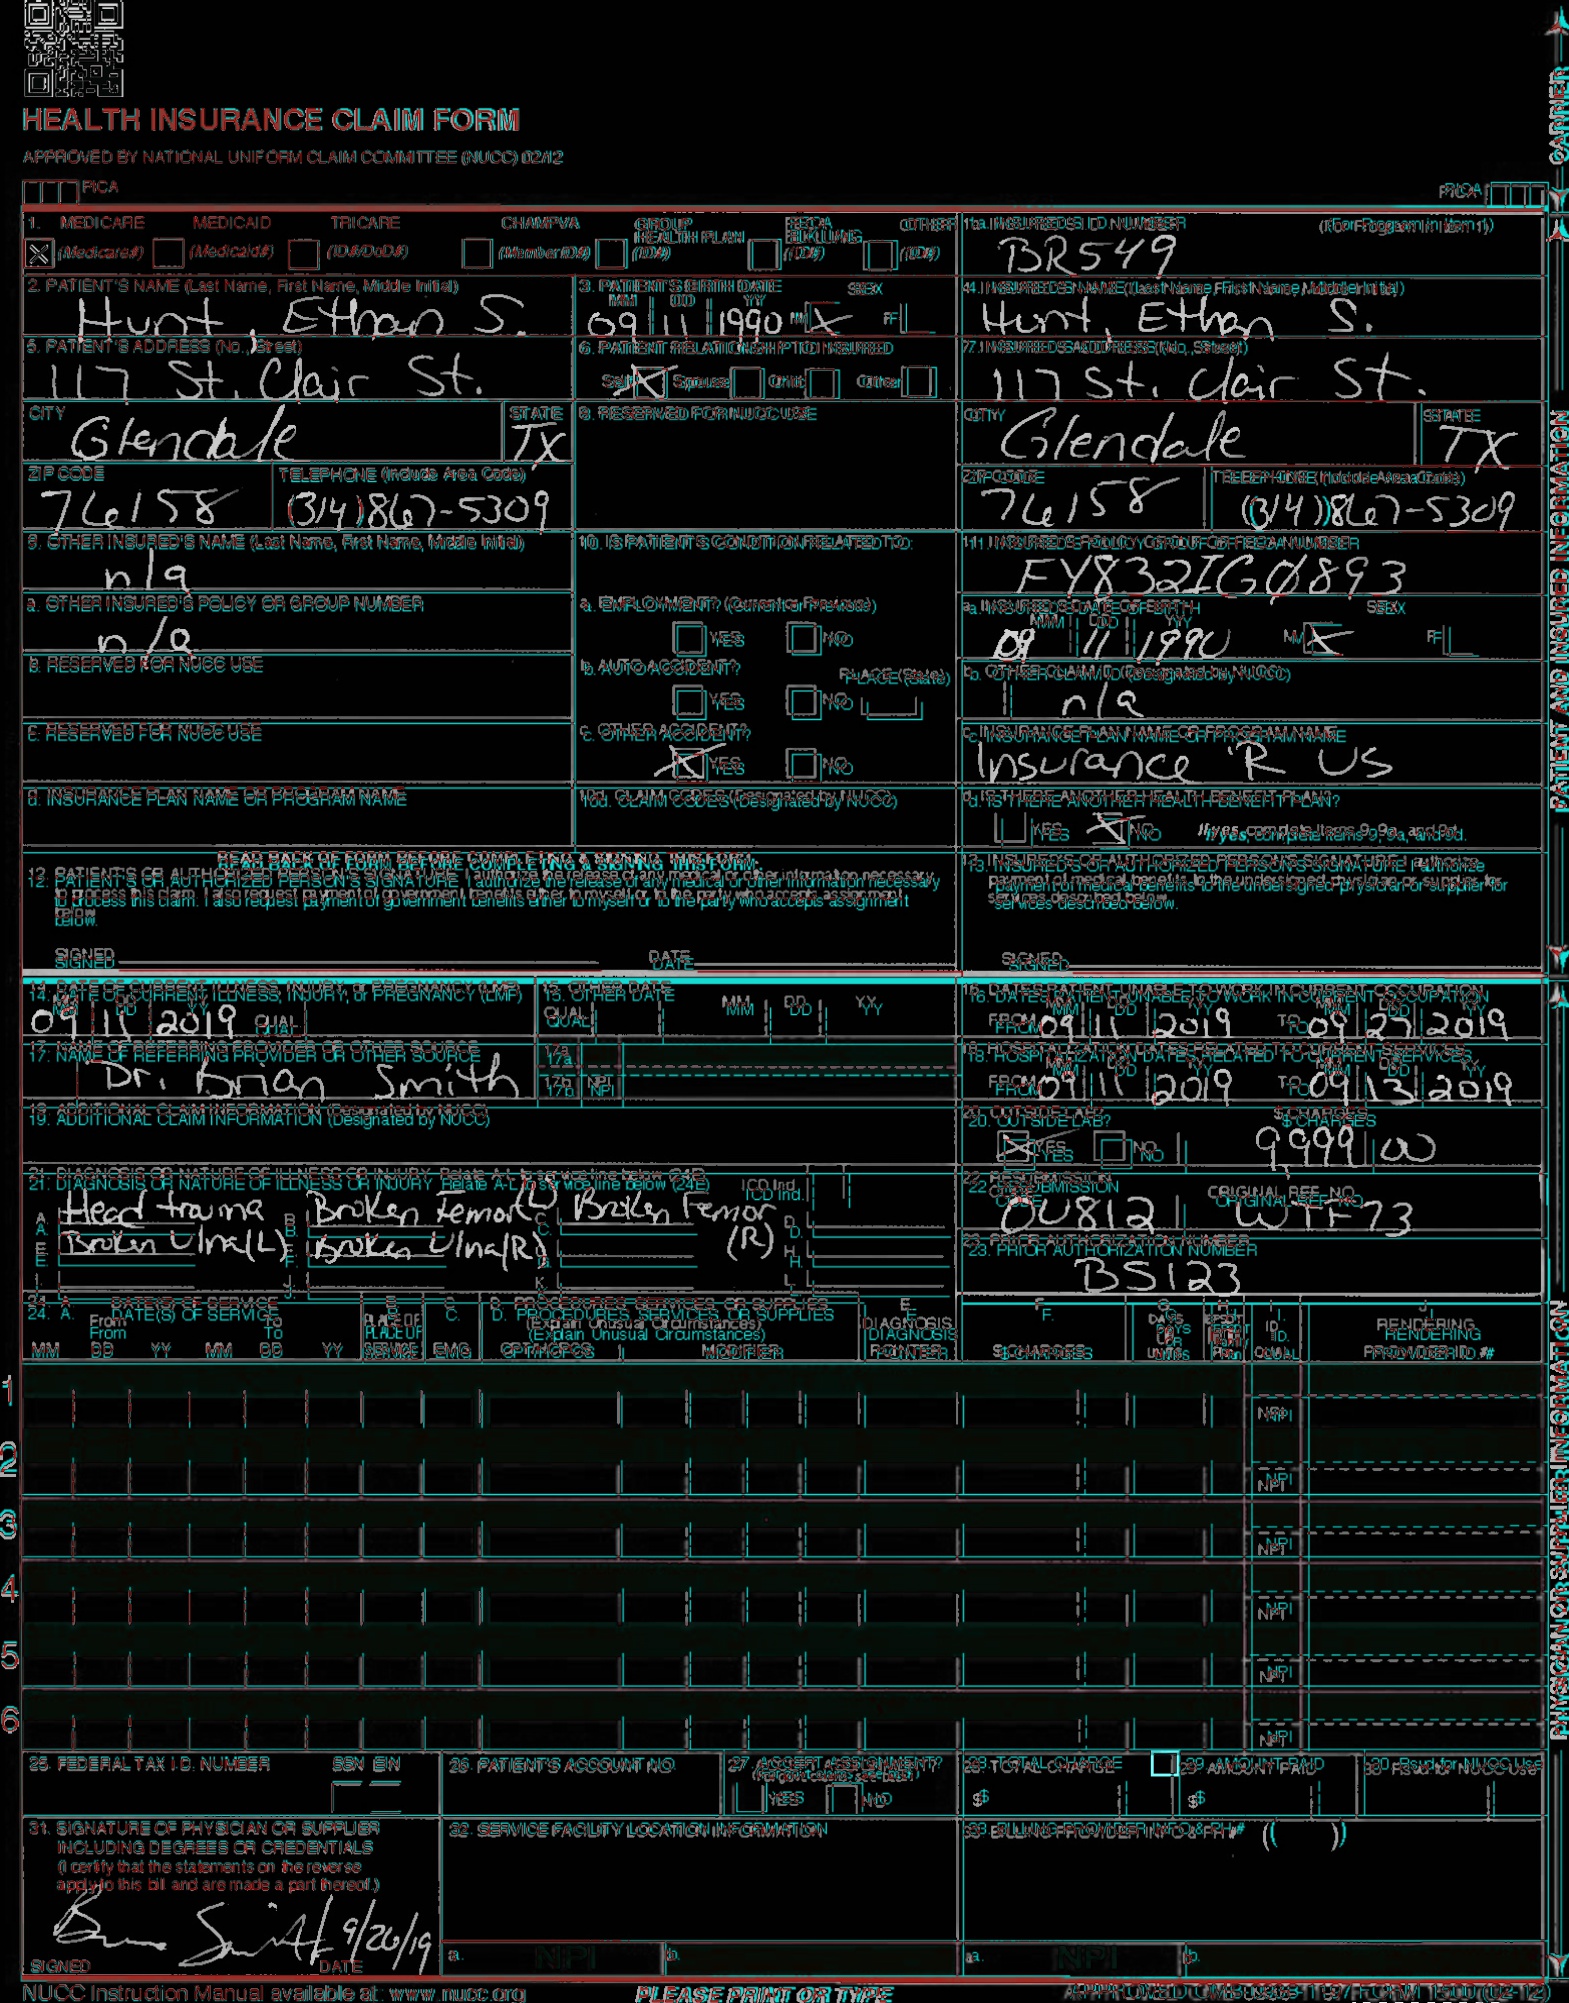 HEALTH INSURANCE CLAIM FORM
APPROVED BY NATIONAL UNIFORM CLAIM COMMITTEE (NUCC) 02/12
PICA
PICA
CARRIER
1. MEDICARE MEDICAID TRICARE CHAMPVA GROUP HEALTH PLAN FECA BLK LUNG OTHER
(Medicare#) (Medicaid#) (ID#/DoD#) (Member ID#) (ID#) (ID#) (ID#)
1a. INSURED'S I.D. NUMBER (For Program in Item 1)
BR549
2. PATIENT'S NAME (Last Name, First Name, Middle Initial)
Hunt, Ethan S.
3. PATIENT'S BIRTH DATE SEX
MM DD YY
09 11 1990 M X F
4. INSURED'S NAME (Last Name, First Name, Middle Initial)
Hunt, Ethan S.
5. PATIENT'S ADDRESS (No., Street)
117 St. Clair St.
6. PATIENT RELATIONSHIP TO INSURED
Self X Spouse Child Other
7. INSURED'S ADDRESS (No., Street)
117 St. Clair St.
CITY STATE
Glendale TX
8. RESERVED FOR NUCC USE
CITY STATE
Glendale TX
ZIP CODE TELEPHONE (Include Area Code)
76158 (314)867-5309
ZIP CODE TELEPHONE (Include Area Code)
76158 (314)867-5309
9. OTHER INSURED'S NAME (Last Name, First Name, Middle Initial)
n/a
10. IS PATIENT'S CONDITION RELATED TO:
11. INSURED'S POLICY GROUP OR FECA NUMBER
FY832IG0893
a. OTHER INSURED'S POLICY OR GROUP NUMBER
n/a
a. EMPLOYMENT? (Current or Previous)
YES NO
a. INSURED'S DATE OF BIRTH SEX
MM DD YY
09 11 1990 M X F
b. RESERVED FOR NUCC USE
b. AUTO ACCIDENT? PLACE (State)
YES NO
b. OTHER CLAIM ID (Designated by NUCC)
n/a
c. RESERVED FOR NUCC USE
c. OTHER ACCIDENT?
X YES NO
c. INSURANCE PLAN NAME OR PROGRAM NAME
Insurance 'R US
d. INSURANCE PLAN NAME OR PROGRAM NAME
10d. CLAIM CODES (Designated by NUCC)
d. IS THERE ANOTHER HEALTH BENEFIT PLAN?
YES X NO If yes, complete items 9, 9a, and 9d.
PATIENT AND INSURED INFORMATION
READ BACK OF FORM BEFORE COMPLETING & SIGNING THIS FORM.
12. PATIENT'S OR AUTHORIZED PERSON'S SIGNATURE I authorize the release of any medical or other information necessary
to process this claim. I also request payment of government benefits either to myself or to the party who accepts assignment
below.
SIGNED DATE
13. INSURED'S OR AUTHORIZED PERSON'S SIGNATURE I authorize
payment of medical benefits to the undersigned physician or supplier for
services described below.
SIGNED
14. DATE OF CURRENT ILLNESS, INJURY, or PREGNANCY (LMP)
MM DD YY
09 11 2019 QUAL.
15. OTHER DATE
QUAL. MM DD YY
16. DATES PATIENT UNABLE TO WORK IN CURRENT OCCUPATION
MM DD YY MM DD YY
FROM 09 11 2019 TO 09 27 2019
17. NAME OF REFERRING PROVIDER OR OTHER SOURCE
Dr. Brian Smith
17a.
17b. NPI
18. HOSPITALIZATION DATES RELATED TO CURRENT SERVICES
MM DD YY MM DD YY
FROM 09 11 2019 TO 09 13 2019
19. ADDITIONAL CLAIM INFORMATION (Designated by NUCC)
20. OUTSIDE LAB? $ CHARGES
X YES NO 9999 00
21. DIAGNOSIS OR NATURE OF ILLNESS OR INJURY Relate A-L to service line below (24E) ICD Ind.
A. Head trauma B. Broken Femor(L) C. Broken Femor (R) D.
E. Broken Ulna(L) F. Broken Ulna(R) G. H.
I. J. K. L.
22. RESUBMISSION CODE ORIGINAL REF. NO.
OU812 WTF73
23. PRIOR AUTHORIZATION NUMBER
BS123
24. A. DATE(S) OF SERVICE B. PLACE OF SERVICE C. EMG D. PROCEDURES, SERVICES, OR SUPPLIES E. DIAGNOSIS POINTER F. $ CHARGES G. DAYS OR UNITS H. EPSDT Family Plan I. ID. QUAL. J. RENDERING PROVIDER ID. #
From To (Explain Unusual Circumstances)
MM DD YY MM DD YY CPT/HCPCS MODIFIER
1 NPI
2 NPI
3 NPI
4 NPI
5 NPI
6 NPI
PHYSICIAN OR SUPPLIER INFORMATION
25. FEDERAL TAX I.D. NUMBER SSN EIN
26. PATIENT'S ACCOUNT NO.
27. ACCEPT ASSIGNMENT?
(For govt. claims, see back)
YES NO
28. TOTAL CHARGE
$
29. AMOUNT PAID
$
30. Rsvd for NUCC Use
31. SIGNATURE OF PHYSICIAN OR SUPPLIER
INCLUDING DEGREES OR CREDENTIALS
(I certify that the statements on the reverse
apply to this bill and are made a part thereof.)
9/26/19
SIGNED DATE
32. SERVICE FACILITY LOCATION INFORMATION
a. NPI b.
33. BILLING PROVIDER INFO & PH # ( )
a. NPI b.
NUCC Instruction Manual available at: www.nucc.org
PLEASE PRINT OR TYPE
APPROVED OMB-0938-1197 FORM 1500 (02-12)